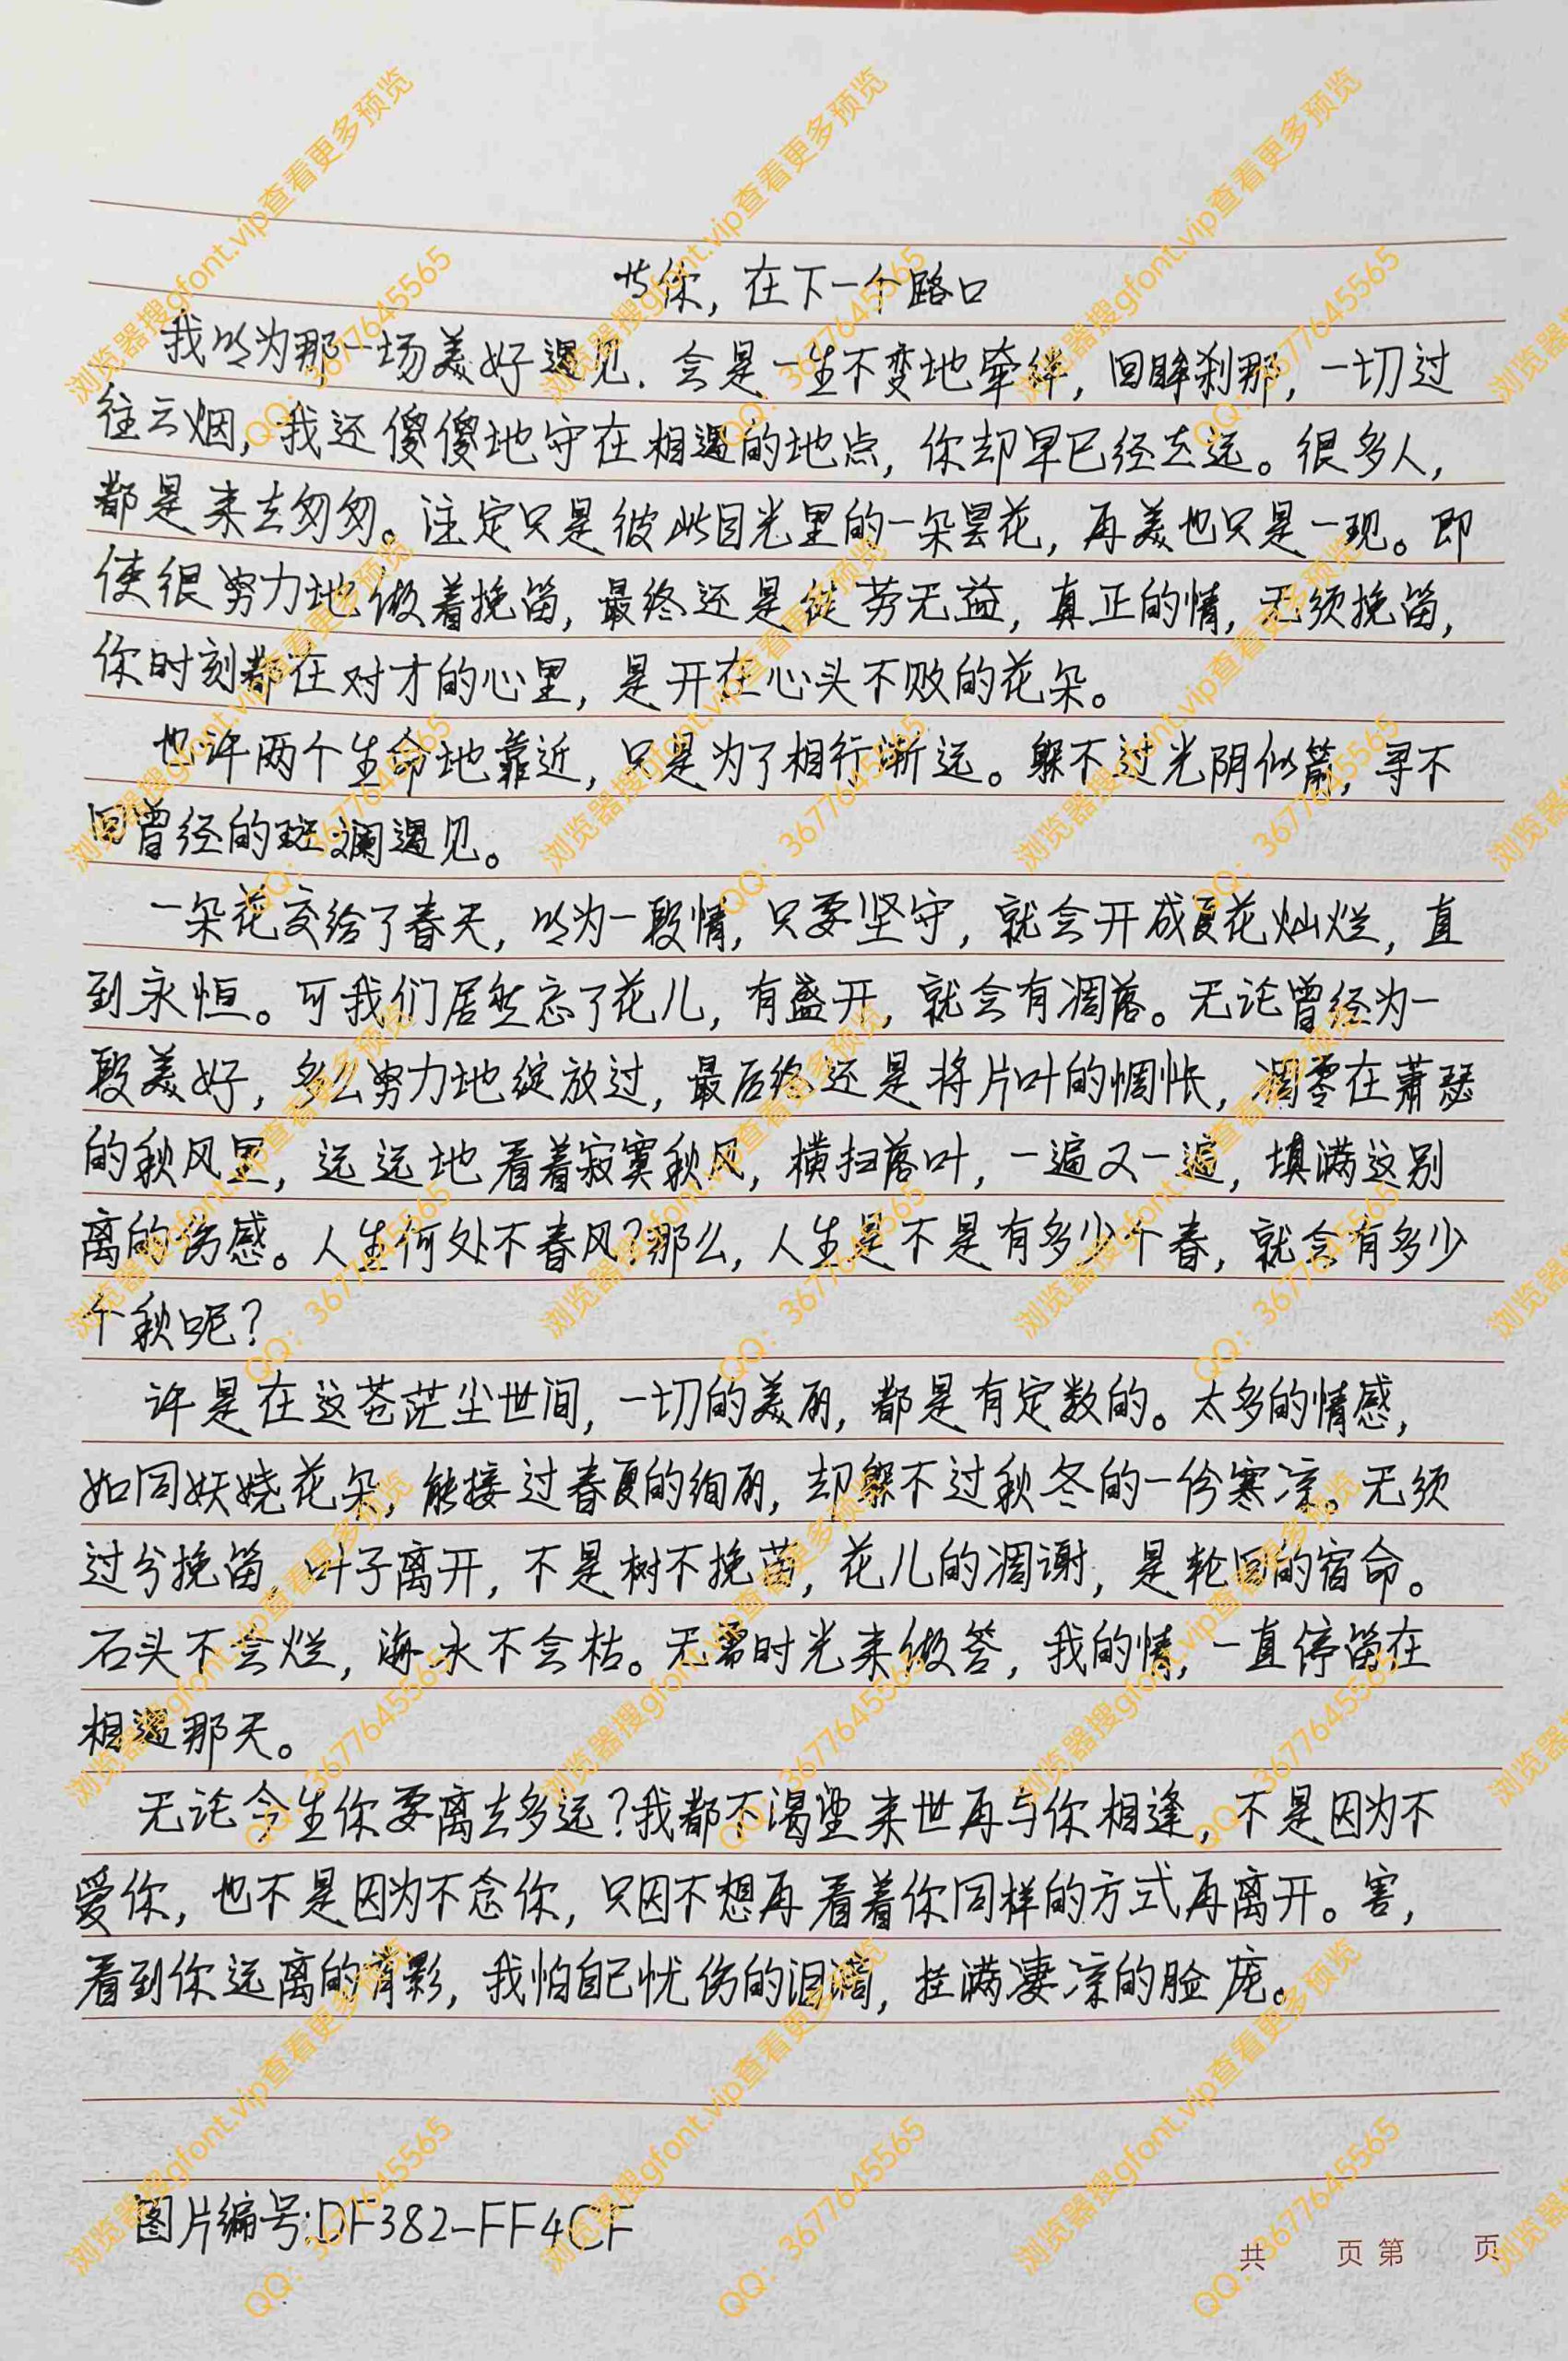 你，在下一个路口
我以为那一场美好遇见，会是一生不变地牵绊，回眸刹那，一切过
往云烟，我还傻傻地守在相遇的地点，你却早已经去远。很多人，
都是来去匆匆。注定只是彼此目光里的一朵昙花，再美也只是一现。即
使很努力地做着挽留，最终还是徒劳无益，真正的情，无须挽留，
你时刻都在对才的心里，是开在心头不败的花朵。
也许两个生命地靠近，只是为了相行渐远。躲不过光阴似箭，寻不
回曾经的斑斓遇见。
一朵花交给了春天，以为一段情，只要坚守，就会开成夏花灿烂，直
到永恒。可我们居然忘了花儿，有盛开，就会有凋落。无论曾经为一
段美好，多么努力地绽放过，最后终还是将片叶的惆怅，凋零在萧瑟
的秋风里，远远地看着寂寞秋风，横扫落叶，一遍又一遍，填满这别
离的伤感。人生何处不春风？那么，人生是不是有多少个春，就会有多少
个秋呢？
许是在这苍茫尘世间，一切的美丽，都是有定数的。太多的情感，
如同妖娆花朵，能接过春夏的绚丽，却躲不过秋冬的一份寒凉。无须
过分挽留，叶子离开，不是树不挽留，花儿的凋谢，是轮回的宿命。
石头不会烂，海水不会枯。无需时光来做答，我的情，一直停留在
相遇那天。
无论今生你要离去多远？我都不渴望来世再与你相逢，不是因为不
爱你，也不是因为不念你，只因不想再看着你同样的方式再离开。害，
看到你远离的背影，我怕自己忧伤的泪滴，挂满凄凉的脸庞。
图片编号:DF382-FF4CF
共 页 第 页
浏览器搜gfont.vip查看更多预览
QQ：3677645565